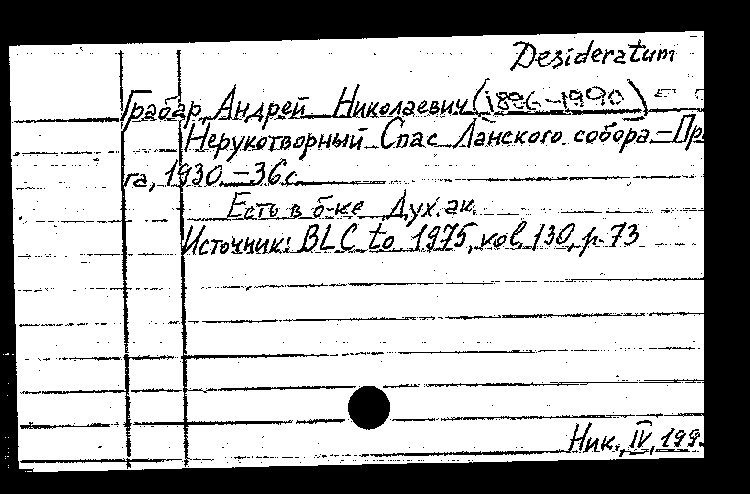 Desideratum
Грабар, Андрей Николаевич (1896-1990)
Нерукотворный Спас Ланского собора.-Пра
га, 1930.-36с.
Есть в б-ке Дух. ак.
Источник: BLC to 1975, vol. 130, p. 73
Ник., IV, 199